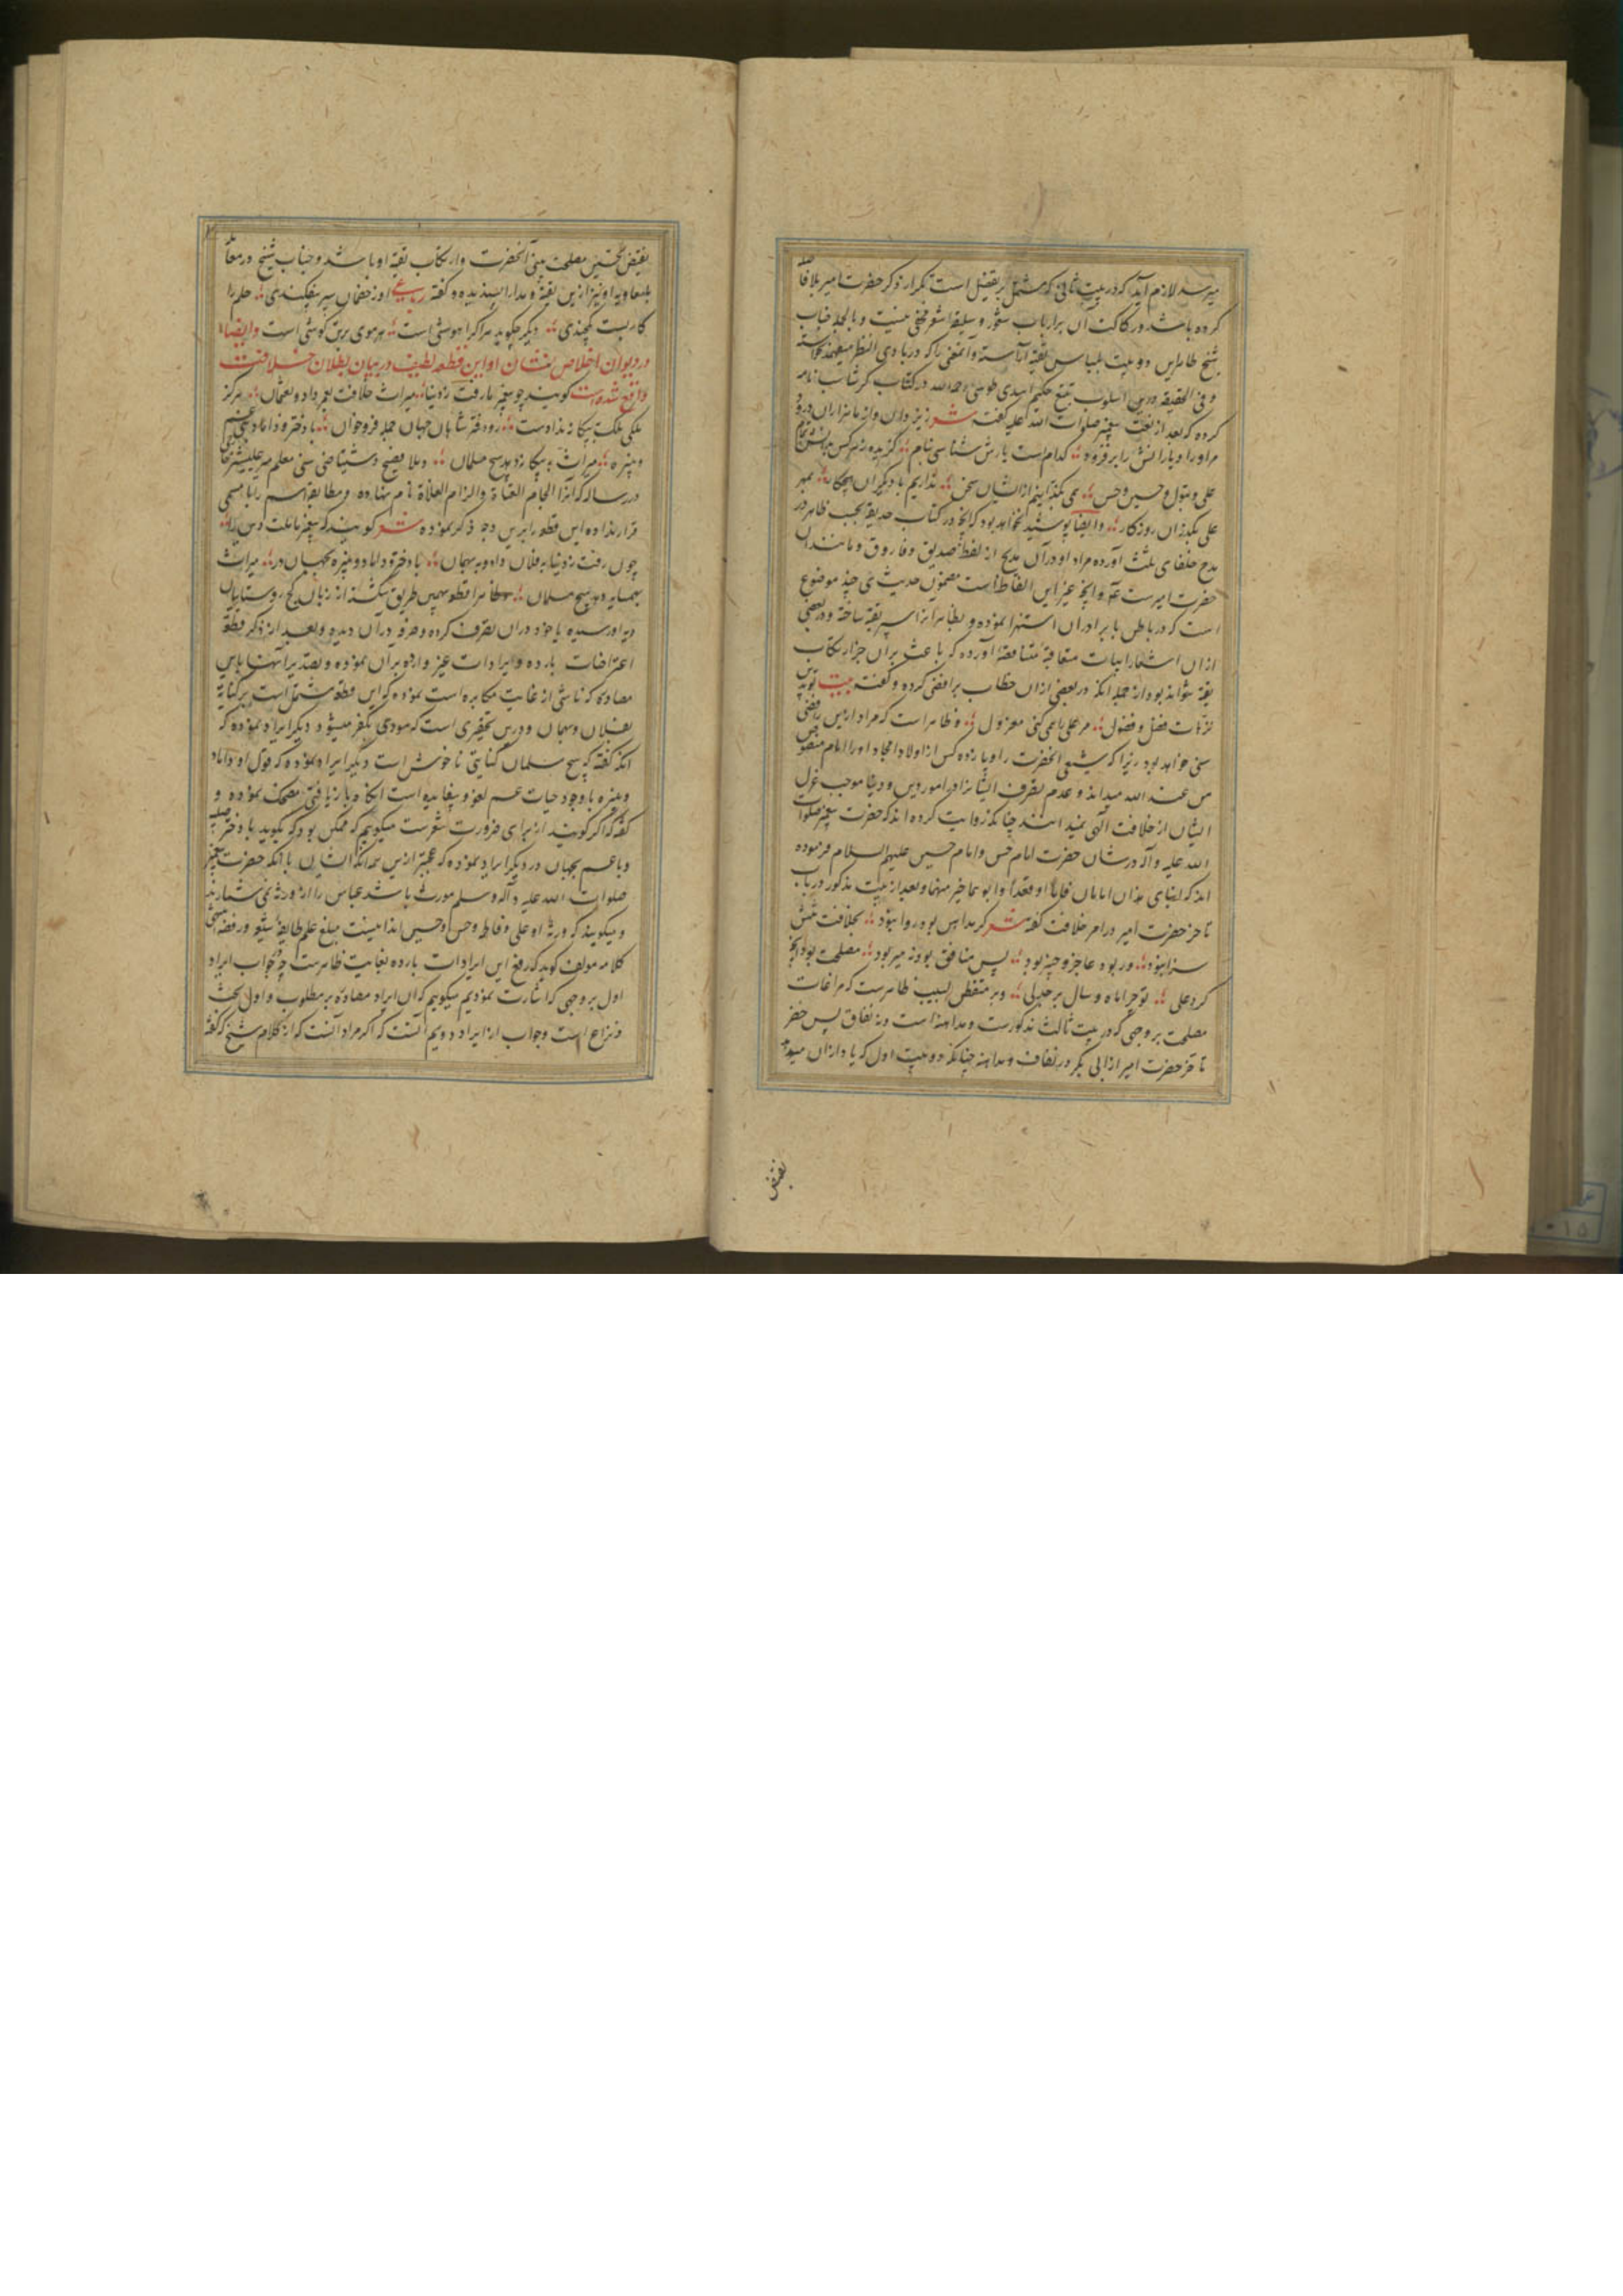 میرسد لازم آید که در بیت ثانی که مشتمل بر تفضیل است تکرار ذکر حضرت امیر بلا فاصله
کرده باشد و رکاکت آن بر ارباب شعور و سلیقه شعر مخفی نیست و بالجمله جناب
شیخ ظاهر این دو بیت بلباس تقیه آراسته و آن معنی را که در بادی النظر
و فی الحقیقه درین اسلوب تتبع حکیم اسدی طوسی رحمه الله در کتاب کرشاسب نامه
کرده که بعد از نعت پیغمبر صلوات الله علیه گفته شعر ز یزدان و از ما هزاران درود
مر او را و یارانش را بر فزود کدامست یارش شناسی بنام گزیده ز هر کس
علی و بتول و حسین و حسن نمی بگذرانیم از ایشان سخن نداریم با دیگران هیچ کار بمهر
علی بگذران روزکار وایضا پوشیده نخواهد بود که آنچه در کتاب حدیقه بحسب ظاهر در
مدح خلفای ثلث آورده مراد او در آن مدح از لفظ صدیق و فاروق و مانند آن
حضرت امیرست ع و آنچه غیر این الفاظ است مضمون حدیثی چند موضوع
است که در باطن با برادران استهزا نموده و بظاهر آنرا سپر تقیه ساخته و در بعضی
از آن اشعار ابیات متعاقبه متناقضه آورده که باعث بر آن جز ارتکاب
تقیه نتواند بود از جمله آنکه در بعضی از آن خطاب برافضی کرده و گفته بیت تو بدین
ترهات فضل و فضول مر علی را همی کنی معزول و ظاهر است که مراد ازین رافضی
سنی خواهد بود زیرا که شیعی آنحضرت را و یازده کس از اولاد امجاد او را امام منصوص
من عند الله میداند و عدم تصرف ایشانرا در امور دین و دنیا موجب عزل
ایشان از خلافت الهی نمیدانند چنانکه روایت کرده اند که حضرت پیغمبر صلوات
الله علیه و آله در شان حضرت امام حسن و امام حسین علیهم السلام فرموده
اند که ابنای هذان امامان قاما او قعدا و ابوهما خیر منهما و بعد از بیت مذکور در باب
تاخر حضرت امیر در امر خلافت گفته شعر گر مداهن بود روا نبود بخلافت تنش
سزا نبود ور بود عاجز و حزین بود پس منافق بود نه میر بود مصلحت بود آنچه
کرد علی تو چرا ماه و سال بر جدلی و بر متفطن لبیب ظاهرست که مراعات
مصلحت بر وجهی که در بیت ثالث مذکورست مداهنه است و نه نفاق پس حضر
تاخر حضرت امیر از ابی بکر در نفاق و مداهنه چنانکه دو بیت اول که یاد از آن میدهد
نقیض
نقیض تحسین مصلحت بینی آنحضرت و ارتکاب تقیه او باشد و جناب شیخ در
بلیغا و به او نیز ازین تقیه و مدارا پسندیده و گفته رباعی او ز خصمان سپر نیفکندی حلم را
کار بست یکچندی دیگر چگوید هر اکرا هوشی است هر موی برتن گوشی است وایضا
در دیوان اخلاص نشان او این قطعه لطیف در بیان بطلان خلافت
واقع شده است گویند چو پیغمبر ما رفت ز دنیا میراث خلافت بعمر داد و بعثمان هرگز
ملکی ملک به بیگانه نداده ست رو دفتر شاهان جهان جمله فرو خوان با دختر و داماد و بنی عم
و نبیره میراث به بیگانه دهد هیچ مسلمان و ملا فصیح دشتبیاضی سنی معلم میر علیشیر
در رساله که آنرا الجام العتاة و الزام الغلاة نام نهاده و مطابقه اسم را با مسمی
قرار نداده این قطعه را برین وجه ذکر نموده شعر گویند که پیغمبر ما ملت و دین را
چون رفت ز دنیا به فلان داد و به بهمان با دختر و داماد و نبیره بجهان در میراث
بهمسایه دهد هیچ مسلمان ظاهرا قطعه بهمین طریق شکسته از زبان کج روستاییان
دیه او رسیده یا خود در آن تصرف کرده و صرفه در آن دیده و بعد از ذکر قطعه
اعتراضات بارده و ایرادات غیر وارده بر آن نموده و تصدیر آنها باین
مصادره که ناشی از غایت مکابره است نموده که این قطعه مشتمل است بر کنایه
بفلان و بهمان و درین تحقیری است که مودی بکفر میشود دیگر ایراد نموده که
آنکه گفته که هیچ مسلمان کنایتی ناخوش است دیگر ایراد نموده که قول او داماد
و نبیره با وجود حیات عم لغو و بیفایده است آنگاه باز یافتی مضحک نموده و
گفته که اگر گویند از برای ضرورت شعرست میگویم که ممکن بود که بگوید با دختر
و با عم بجهان در دیگر ایراد نموده که عجبتر ازین همه آنکه ایشان با آنکه حضرت پیغمبر
صلوات الله علیه و آله و سلم مورث باشد عباس را از ورثه نمی شمارند
و میگویند که ورثه او علی و فاطمه و حسن و حسین اند اینست مبلغ علم طایفه شیعه و رفضه انتهی
کلامه مولف گوید که رفع این ایرادات بارده بغایت ظاهرست چه جواب ایراد
اول بر وجهی که اشارت نمودیم میگویم که آن ایراد مصادره بر مطلوب و اول بحث
و نزاع است و جواب از ایراد دویم آنست که اگر مراد آنست که از کلام شیخ که گفته